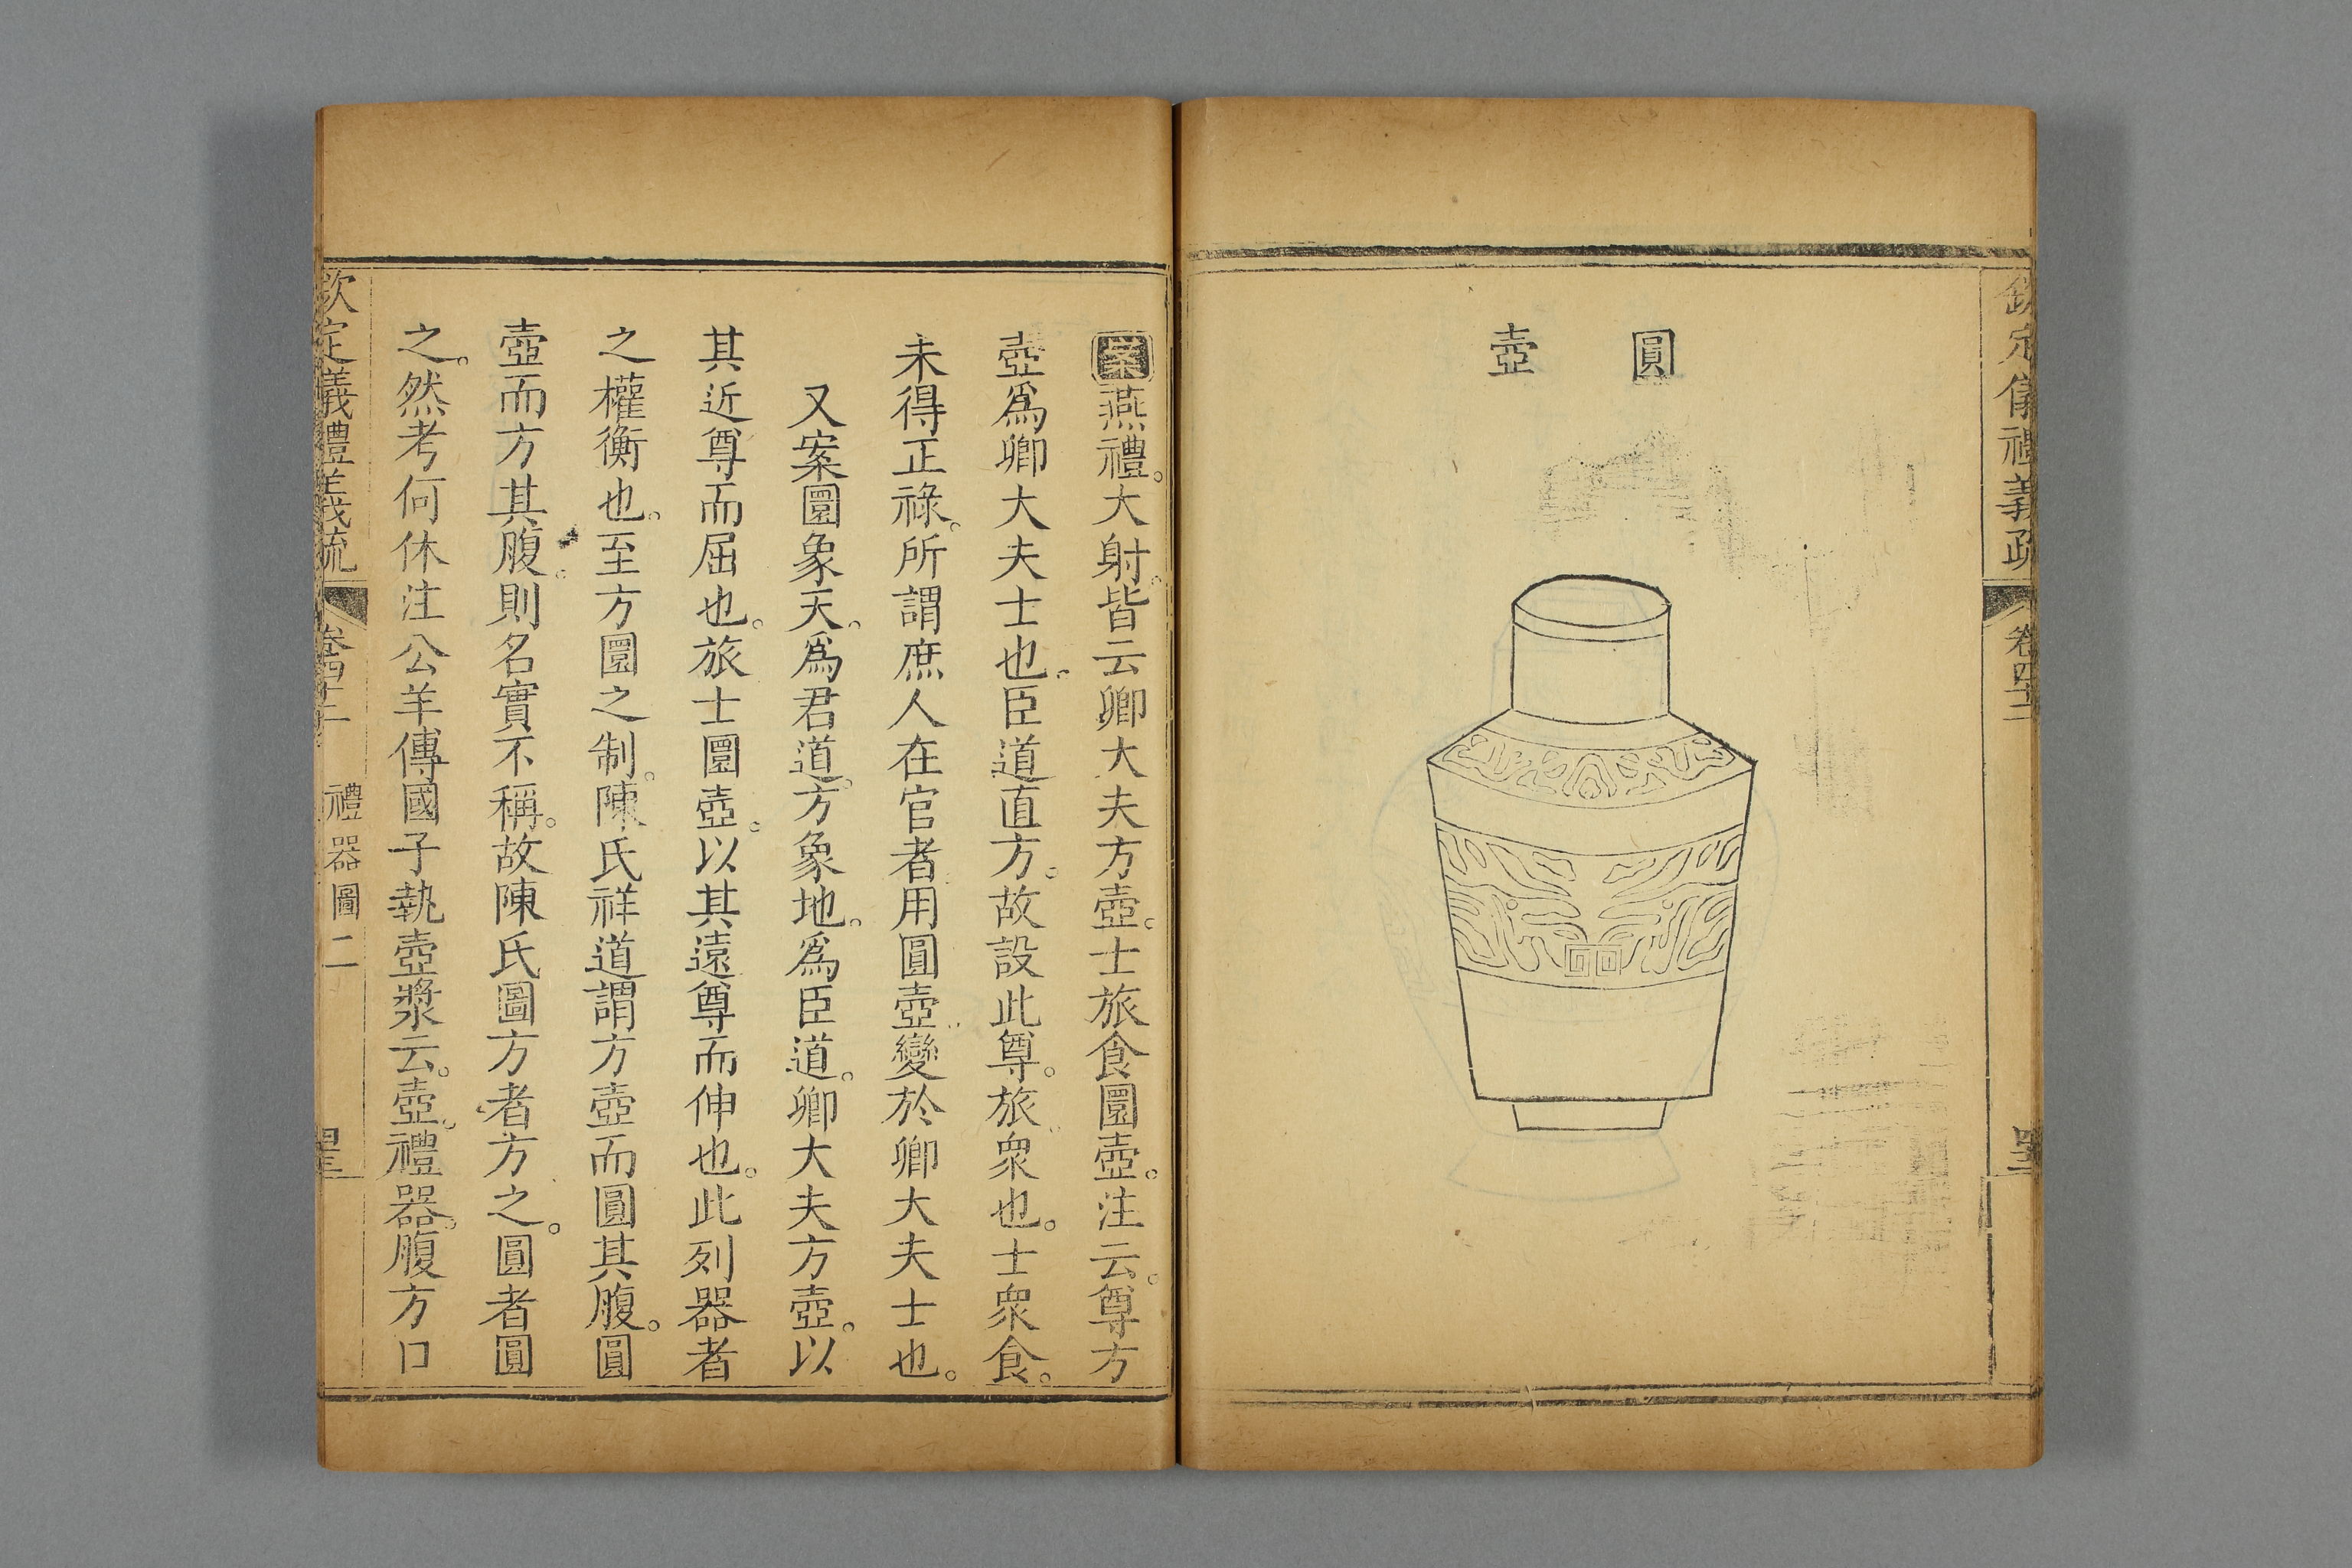 欽定儀禮義疏 卷四十二
圓壺
案燕禮。大射。皆云卿大夫方壺。士旅食圜壺。注云。尊方
壺爲卿大夫士也。臣道直方。故設此尊。旅衆也。士衆食。
未得正祿。所謂庶人在官者用圓壺變於卿大夫士也。
又案圜象天。爲君道。方象地。爲臣道。卿大夫方壺。以
其近尊而屈也。旅士圜壺。以其遠尊而伸也。此列器者
之權衡也。至方圜之制。陳氏祥道謂方壺而圓其腹。圓
壺而方其腹。則名實不稱。故陳氏圖方者方之。圓者圓
之。然考何休注公羊傳國子執壺漿云。壺。禮器。腹方口
欽定儀禮義疏 卷四十二 禮器圖二